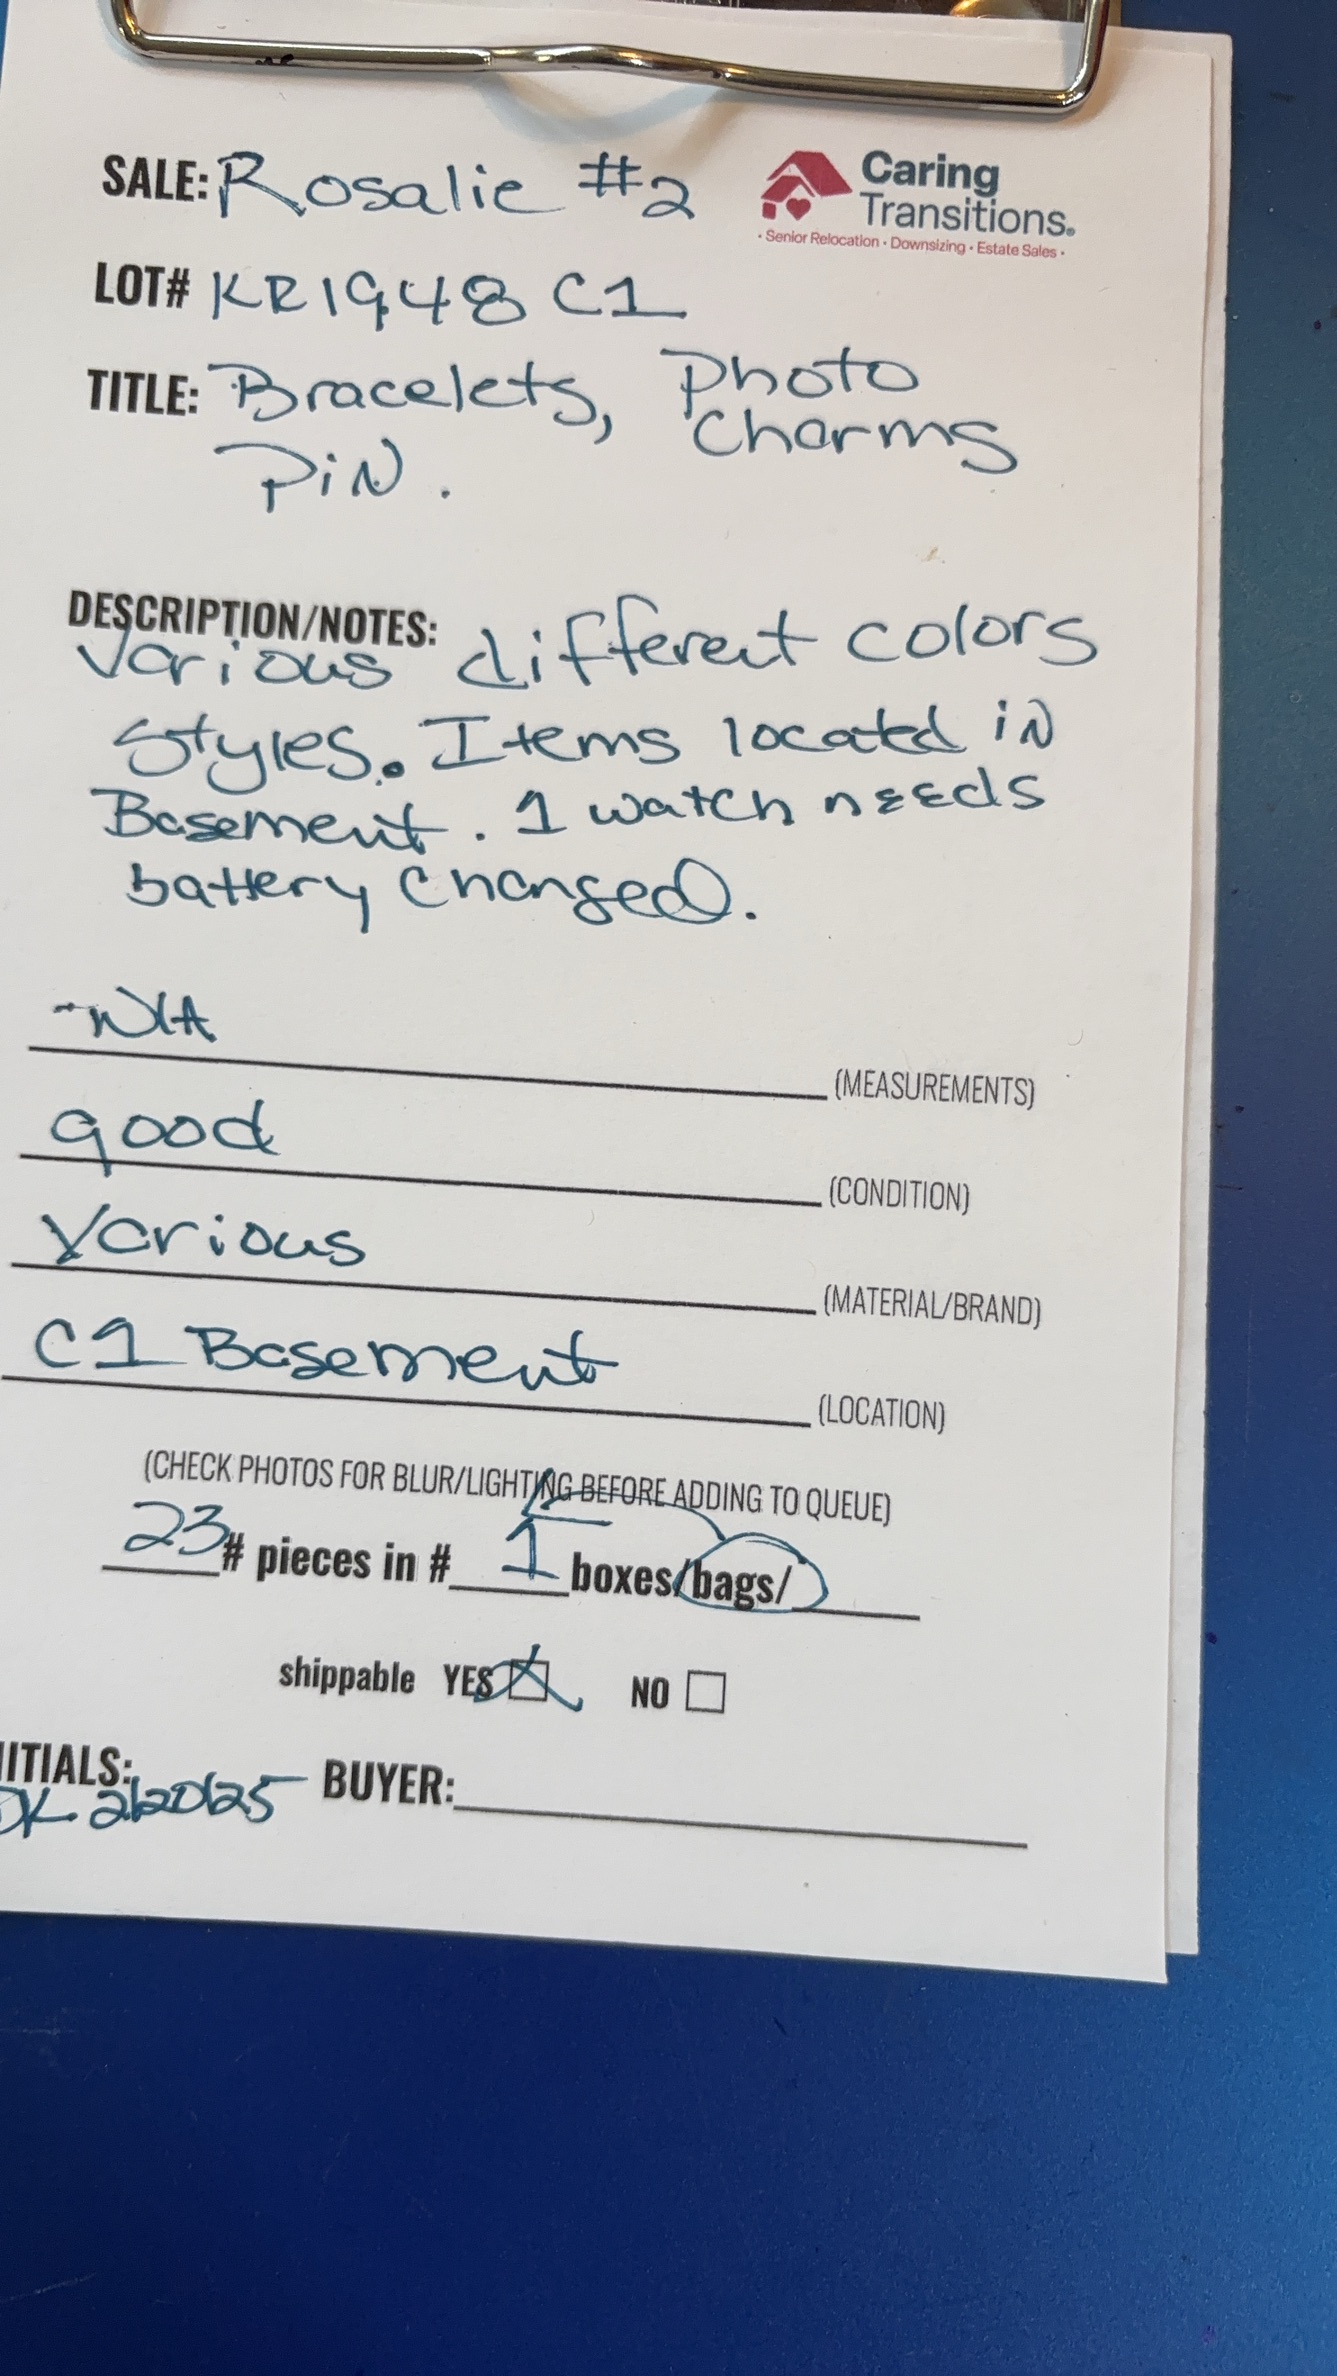 SALE: Rosalie #2
Caring
Transitions®
• Senior Relocation • Downsizing • Estate Sales •
LOT# KR1948 C1
TITLE: Bracelets, Photo
Charms
PiN.
DESCRIPTION/NOTES:
Various different colors
Styles. Items located iN
Basement. 1 watch needs
battery Changed.
-N/A
(MEASUREMENTS)
good
(CONDITION)
Various
(MATERIAL/BRAND)
C1 Basement
(LOCATION)
(CHECK PHOTOS FOR BLUR/LIGHTING BEFORE ADDING TO QUEUE)
23 # pieces in # 1 boxes/bags/
shippable YES NO
ITIALS: BUYER:
DK 2/20/25